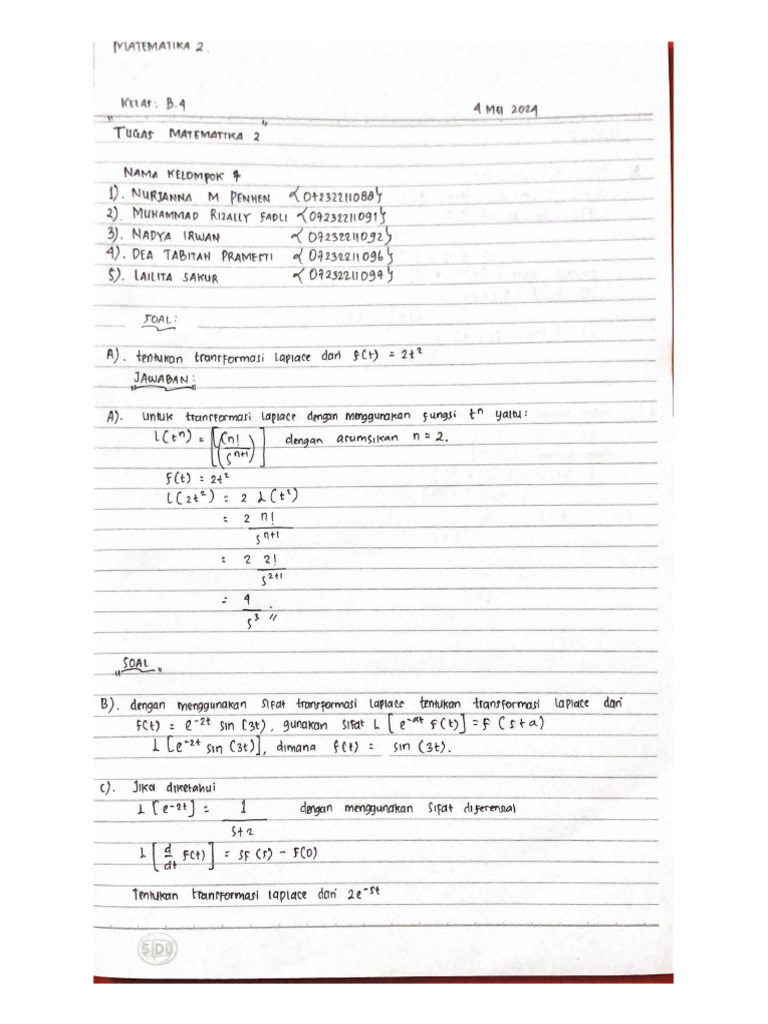 MATEMATIKA 2.
KELAS: B.4 4 MEI 2024
"TUGAS MATEMATIKA 2"
NAMA KELOMPOK 4
1). NURJANNA M PENHEN {07232211088}
2). MUHAMMAD RIZALLY FADLI {07232211091}
3). NADYA IRWAN {07232211092}
4). DEA TABITAH PRAMESTI {07232211096}
5). LAILITA SAKUR {07232211097}
SOAL:
A). tentukan transformasi laplace dari f(t) = 2t²
JAWABAN:
A). Untuk transformasi laplace dengan menggunakan fungsi tⁿ yaitu:
L(tⁿ) = [(n!/(sⁿ⁺¹)] dengan asumsikan n = 2.
f(t) = 2t²
L(2t²) = 2 L(t²)
= 2 n!/sⁿ⁺¹
= 2 2!/s²⁺¹
= 4/s³ . "
"SOAL"
B). dengan menggunakan sifat transformasi laplace tentukan transformasi laplace dari
f(t) = e⁻²ᵗ sin (3t), gunakan sifat L [e⁻ᵃᵗ f(t)] = F (s+a)
L [e⁻²ᵗ sin (3t)], dimana f(t) = sin (3t).
C). Jika diketahui
L [e⁻²ᵗ] = 1/s+2 dengan menggunakan sifat diferensial
L [d/dt f(t)] = sF (s) – f(0)
Tentukan transformasi laplace dari 2e⁻⁵ᵗ
SIDU